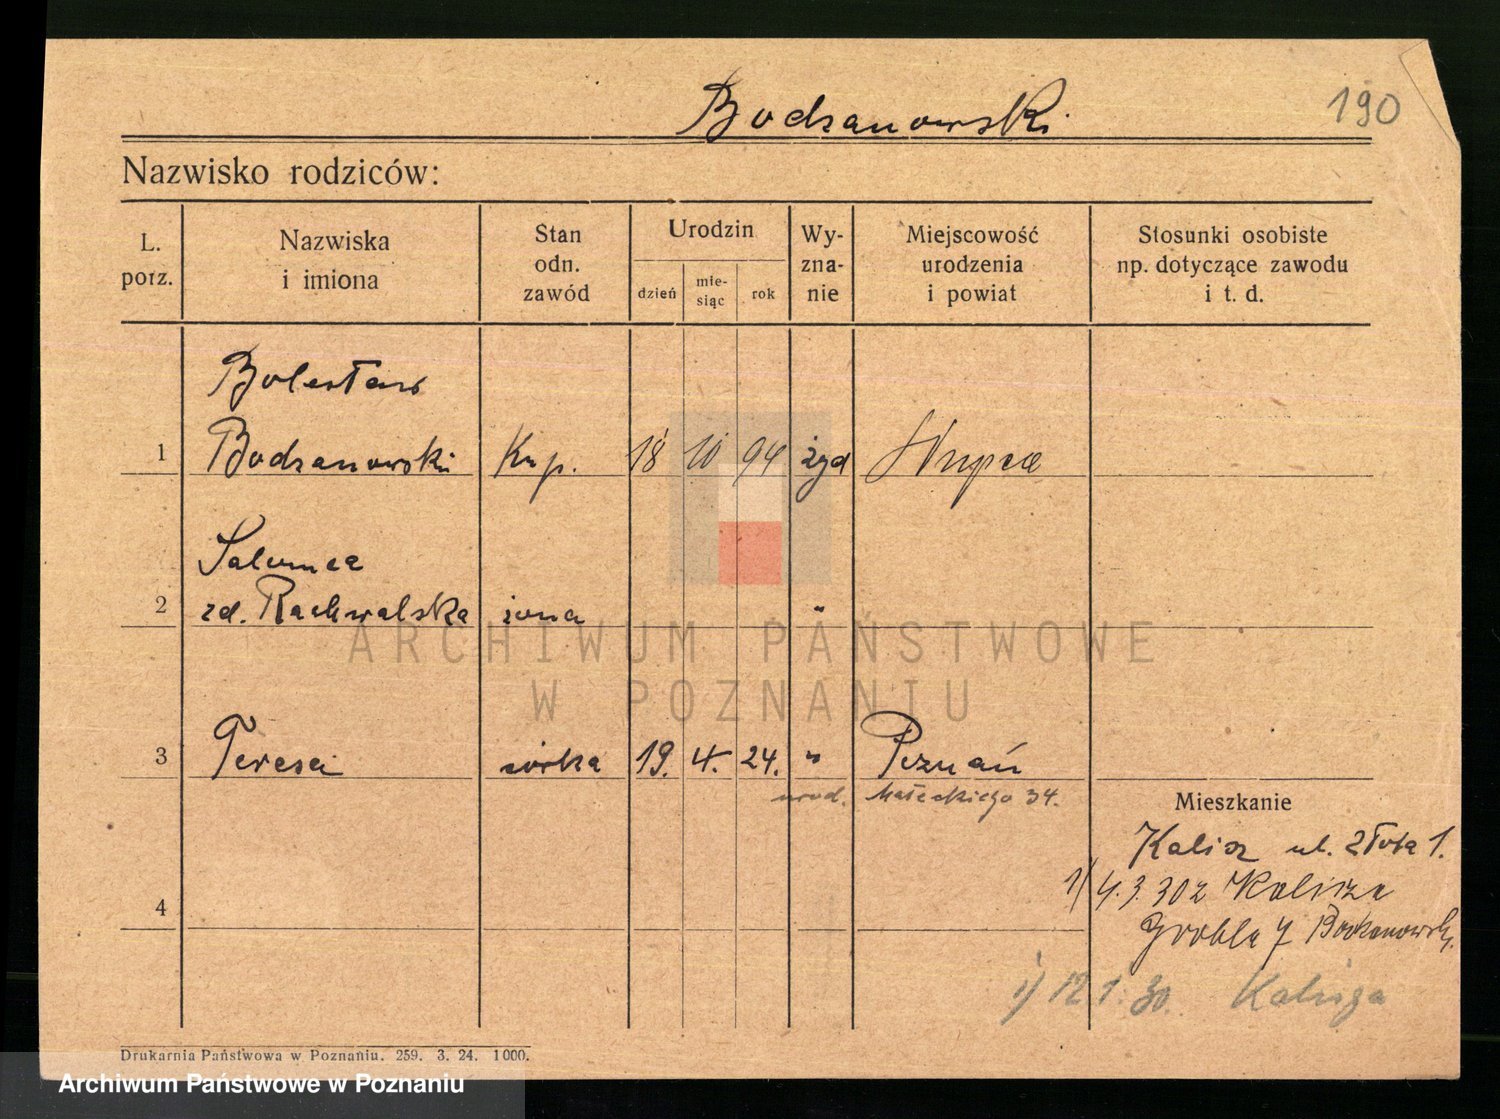 Bodzanowski
190
Nazwisko rodziców:
L. porz.
Nazwiska i imiona
Stan odn. zawód
Urodzin
dzień
mie-siąc
rok
Wy-zna-nie
Miejscowość urodzenia i powiat
Stosunki osobiste np. dotyczące zawodu i t. d.
Bolesław
1 Bodzanowski Kup. 18 10 94 żyd Słupca
Salomea
2 zd. Rachwalska żona "
3 Teresa córka 19. 4. 24. " Poznań
urod. Małeckiego 34.
Mieszkanie
Kalisz ul. Złota 1.
1) 4.3.30 z Kalisza
4
Grobla 7 Bodzanowski
1) 12 1. 30. Kalisza
Drukarnia Państwowa w Poznaniu. 259. 3. 24. 1000.
ARCHIWUM PAŃSTWOWE
W POZNANIU
Archiwum Państwowe w Poznaniu